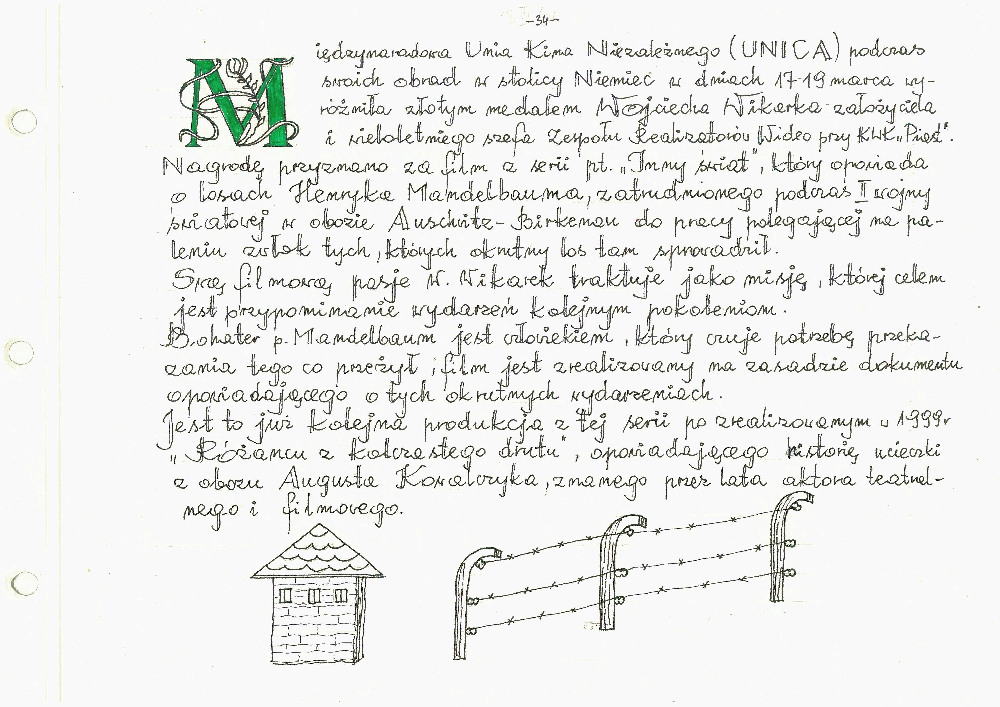 -34-
Międzynarodowa Unia Kina Niezależnego (UNICA) podczas
swoich obrad w stolicy Niemiec w dniach 17-19 marca wy-
różniła złotym medalem Wojciecha Wikarka - założyciela
i wieloletniego szefa Zespołu Realizatorów Wideo przy KWK „Piast".
Nagrodę przyznano za film z serii pt. „Inny świat", który opowiada
o losach Henryka Mandelbauma, zatrudnionego podczas II wojny
światowej w obozie Auschwitz-Birkenau do pracy polegającej na pa-
leniu zwłok tych, których okrutny los tam sprowadził.
Swą filmową pasje W. Wikarek traktuje jako misję, której celem
jest przypominanie wydarzeń kolejnym pokoleniom.
Bohater p. Mandelbaum jest człowiekiem, który czuje potrzebę przeka-
zania tego co przeżył, i film jest zrealizowany na zasadzie dokumentu
opowiadającego o tych okrutnych wydarzeniach.
Jest to już kolejna produkcja z tej serii po zrealizowanym w 1999r
„Różańcu z kolczastego drutu", opowiadającego historię ucieczki
z obozu Augusta Kowalczyka, znanego przez lata aktora teatral-
nego i filmowego.